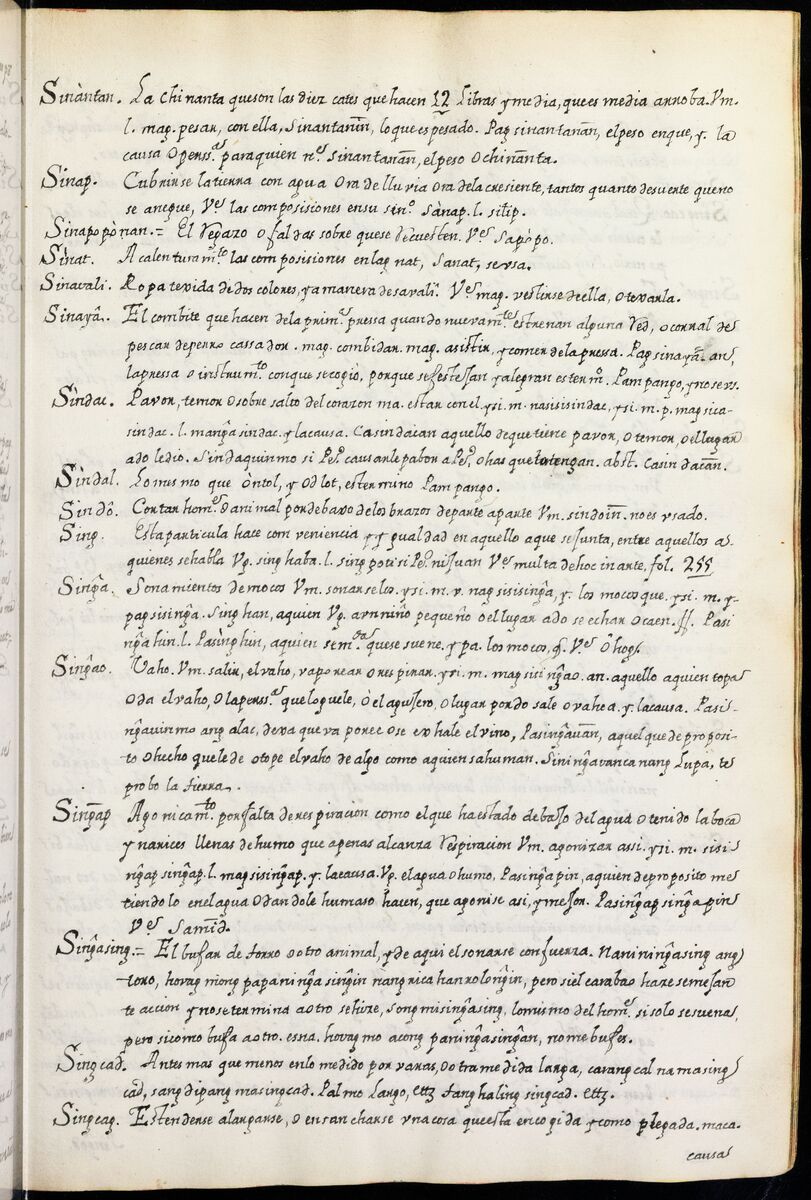 Sinàntan. La chinanta queson las diez cates que hacen 12 libras y media, que es media arroba. Vm.
l. mag. pesar, con ella, sinantanin̄, lo que es pesado. Pag sinantanan̄, el peso en que, y. la
causa O perss.ª para quien n.e sinantanan̄, el peso O chinanta.
Sinap. Cubrirse la tierra con agua Ora de lluvia Ora dela cresiente, tantos quanto desuerte que no
se anegue, V.e las composisiones en su sin.o sànap. l. silip.
Sinapopònan.= El regazo o faldas sobre que se recuesten. V.e sapòpo.
Sìnat. A calentura m.to las composisiones en lag nat, sanat, se vsa.
Sinavali. Ropa texida de dos colores, y a manera de savali. V.e mag. vestirse de ella, o texerla.
Sinayâ. El combite que hacen dela prim.ª pressa quando nuevam.te estrenan alguna red, o corral de
pescar de perro cassador. mag. combidar. mag. asistir, y comer de la pressa. Pag sinayâ. an,
la pressa o instrum.to con que se cogiò, porque se festejan y alegran es term.o Pampango, y no se vs.
Sìndac. Pavor, temor O sobre salto del corazon ma. estar con el y si. m. nasisisindac, y si. m. p. mag sica-
sindac. l. mang̃a sindac. y la causa. Casindacan aquello de que tiene pavor, O temor, O el lugar
ado le dio. Sindaquin mo si P.o causarle pabor a P.o, O has que lo tengan. abst. Casindacan̄.
Sindal. Lo mesmo que Ontol, y Odlot, es termino Pampango.
Sindô. Cortar hom.e O animal por debaxo delos brazos de parte a parte Vm. sindoin̄. no es vsado.
Sing. Esta particula hace comveniencia y ygualdad en aquello aque se junta, entre aquellos a-
quienes se habla Vg. sing haba. l. sing poti si P.o ni Juan V.e multa de hoc in arte, fol. 255
Sing̃a. Sonamientos de mocos Vm. sonarselos, y si. m. v. nag sisising̃a, y. los mocos que. y si. m. y.
pag sising̃a. Sing han, a quien Vg. a vn niño pequeño o el lugar ado se echar O caen. //. Pasi
ng̃a hin. l. Pasìng hin, a quien se m. que se suene, y pa. los mocos, g. V.e Ohog.
Sing̃ao. Vaho. Vm. salir, el vaho, vaporear O respirar. y si. m. mag sising̃ao. an. aquello a quien topa
O da el vaho, O la perss.ª que lo guele, ò el agujero, o lugar por do sale o vahea. y. la causa. Pasi-
ng̃avin mo ang alac, dexa que vaporee O se exhale el vino, Pasing̃avan̄, aquel que de proposi-
to O hecho que le de o tope el vaho de algo como a quien sahuman. Sining̃avan ca nang Lupa, te
probo la tierra.
Sing̃ap Agonicam.to por falta de respiracion como el que ha estado debajo del agua O tenido la boca
y narices llenas de humo que apenas alcanza Respiracion Vm. agonizar assi. y si. m. sisi
ng̃ap sing̃ap. l. mag sising̃ap. y. la causa. Vg. el agua O humo. Pasing̃apin, a quien de proposito me
tiendo lo en el agua O dandole humaso hacen, que agonise asi, y mejor. Pasing̃ap sing̃apin
V.e samid.
Sing̃asing.= El bufar de torro O otro animal, y de aqui el sonarse con fuerza. Nanining̃asing ang
toro, hovag mong papaning̃a sing̃in nang nica hanrolong̃in, pero si el carabao haze semejan
te accion y no se termina a otro se hize, song mising̃asing, lo mismo del hom.e si solo se suena,
pero si como bufa a otro. es na. hovag mo acong paning̃asing̃an, no me bufes.
Singcad. Antes mas que menos en lo medido por varas, O otra medida larga, carangcal na masing
cad, sang dipang masingcad. Palmo Largo, etz tanghaling singcad. etz.
Singcag. Estendense alargarse, o ensancharse vna cosa que esta encogida y como plegada. maca.
causa